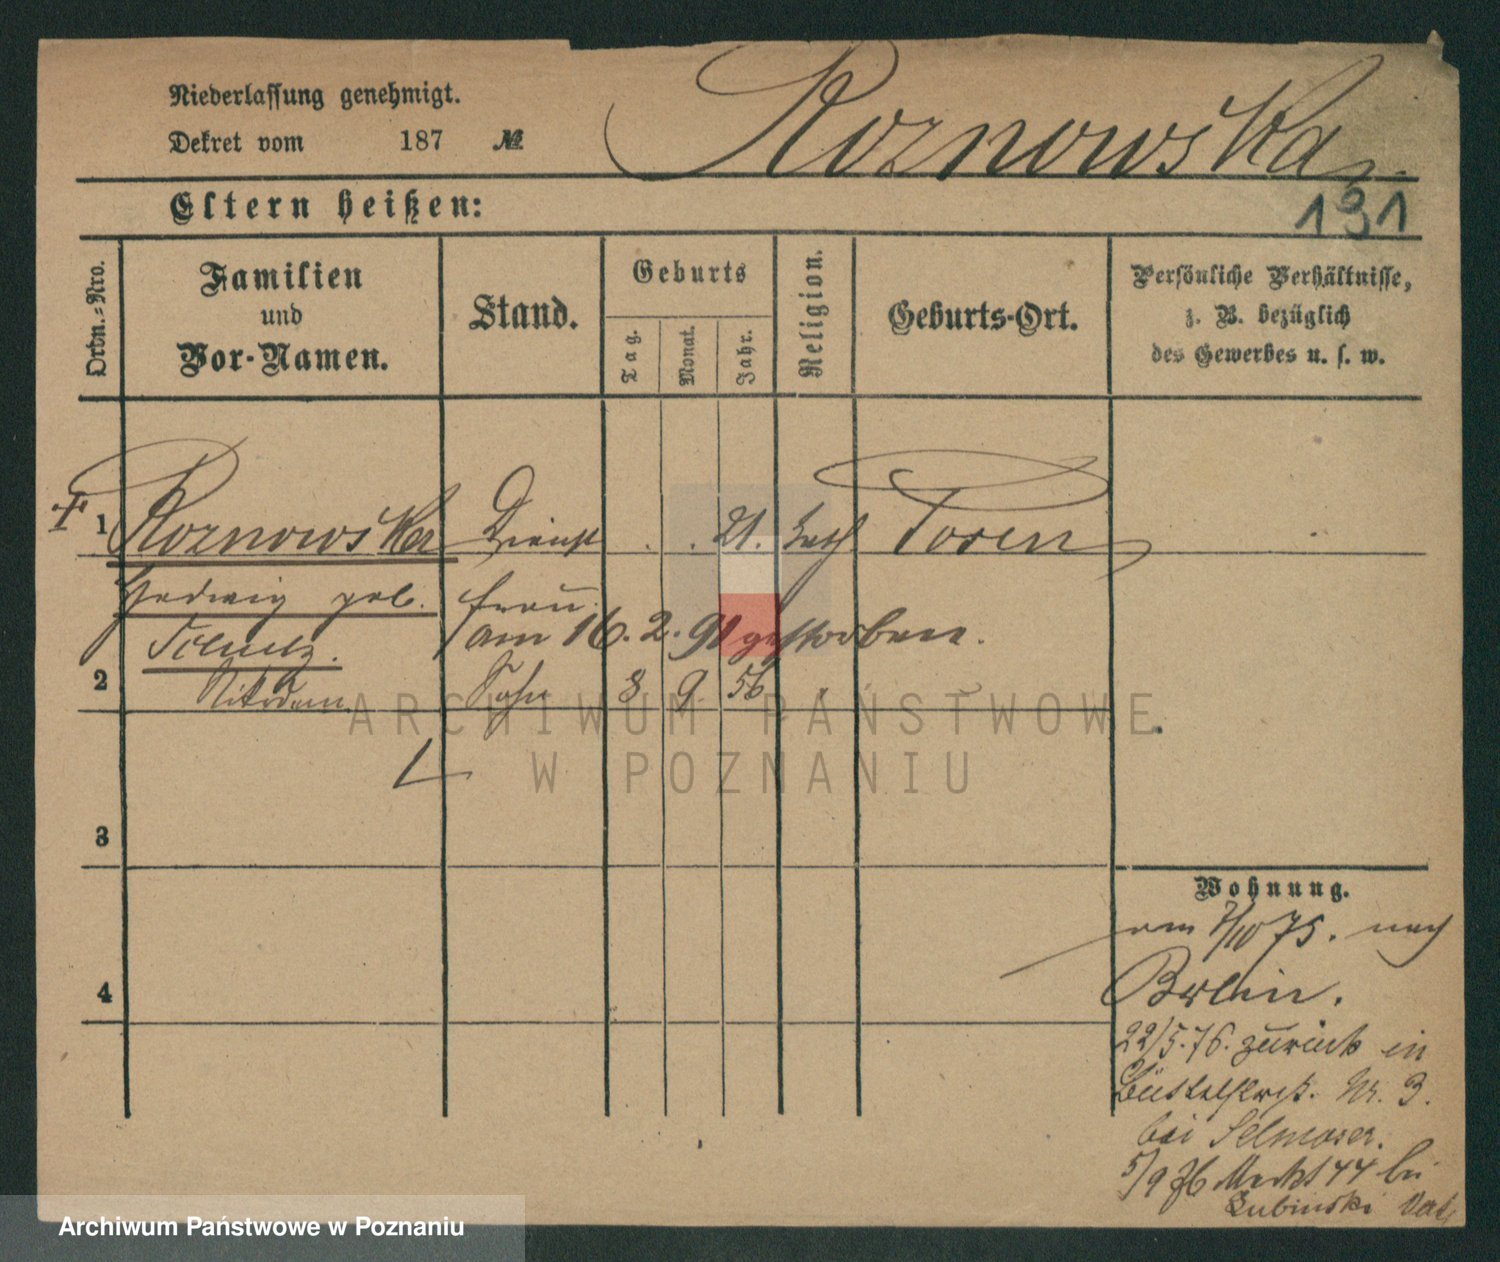 Niederlassung genehmigt.
Dekret vom 187 №
Roznowska.
Eltern heißen:
131
Ordn.-Nro.
Familien
und
Vor-Namen.
Stand.
Geburts
Tag.
Monat.
Jahr.
Religion.
Geburts-Ort.
Persönliche Verhältnisse,
z. B. bezüglich
des Gewerbes u. s. w.
† 1 Roznowska Dienst . . 21. kath Posen
Hedwig geb. frau
am 16. 2. 91 gestorben.
2 Nikodem Sohn 8 9. 56
3
4
Wohnung.
am 7/10 75. nach
Berlin.
22/5. 76. zurück in
Nr. 3.
bei Selmoser.
5/9 76 Markt 44 bei
Lubinski
ARCHIWUM PAŃSTWOWE
W POZNANIU
Archiwum Państwowe w Poznaniu